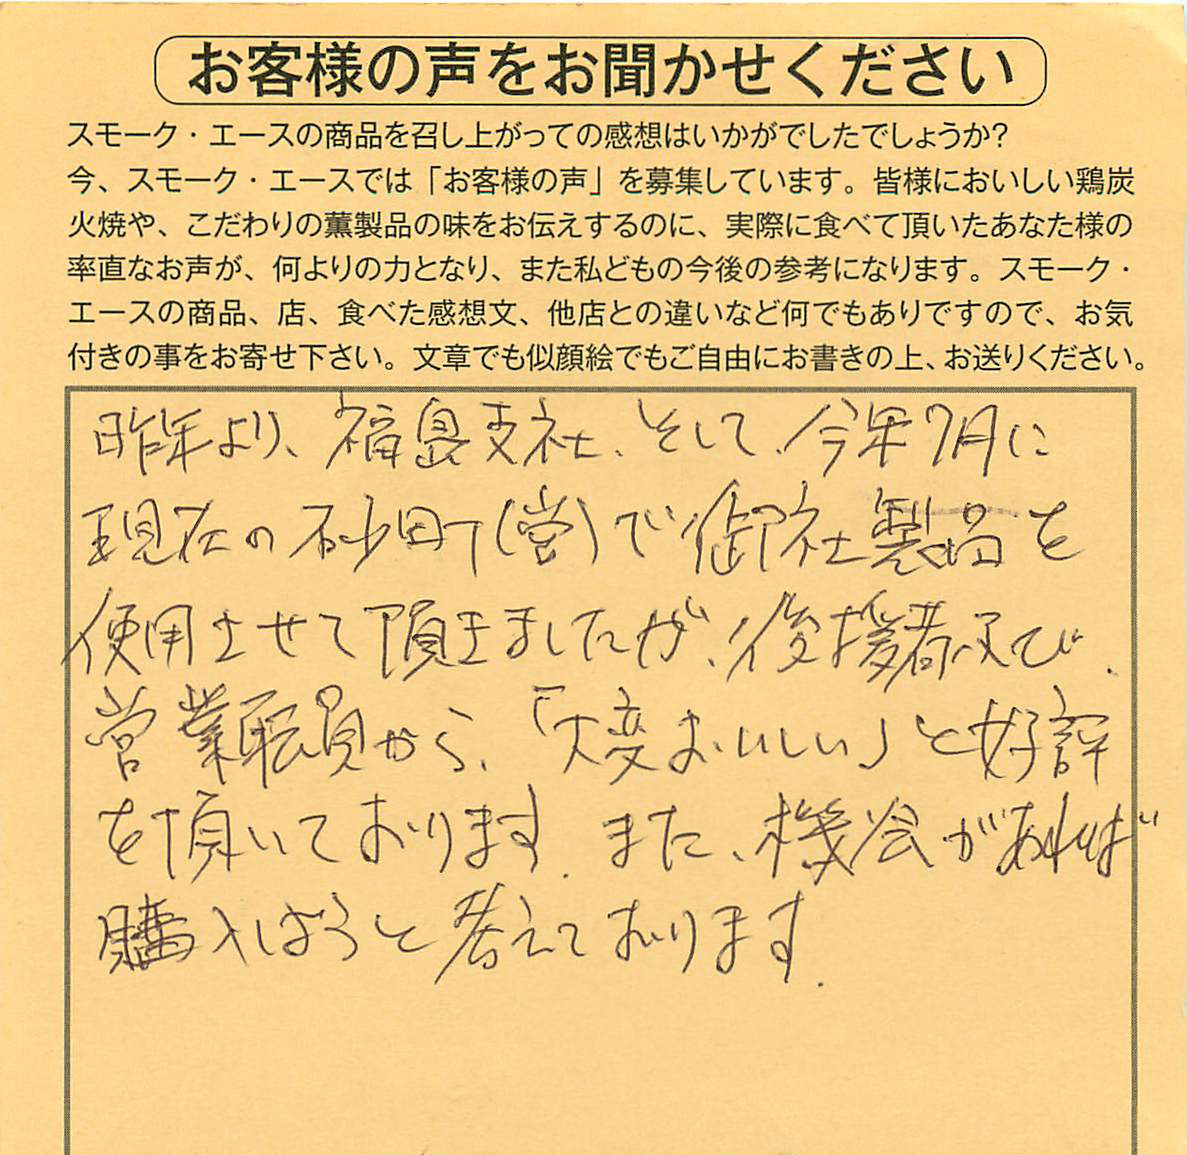 お客様の声をお聞かせください
スモーク・エースの商品を召し上がっての感想はいかがでしたでしょうか?
今、スモーク・エースでは「お客様の声」を募集しています。皆様においしい鶏炭
火焼や、こだわりの薫製品の味をお伝えするのに、実際に食べて頂いたあなた様の
率直なお声が、何よりの力となり、また私どもの今後の参考になります。スモーク・
エースの商品、店、食べた感想文、他店との違いなど何でもありですので、お気
付きの事をお寄せ下さい。文章でも似顔絵でもご自由にお書きの上、お送りください。
昨年より、福島支社、そして、今年7月に
現在の砂町(営)で御社製品を
使用させて頂きましたが、後援者及び、
営業職員から、「大変おいしい」と好評
を頂いております。また、機会があれば
購入しようと考えております。